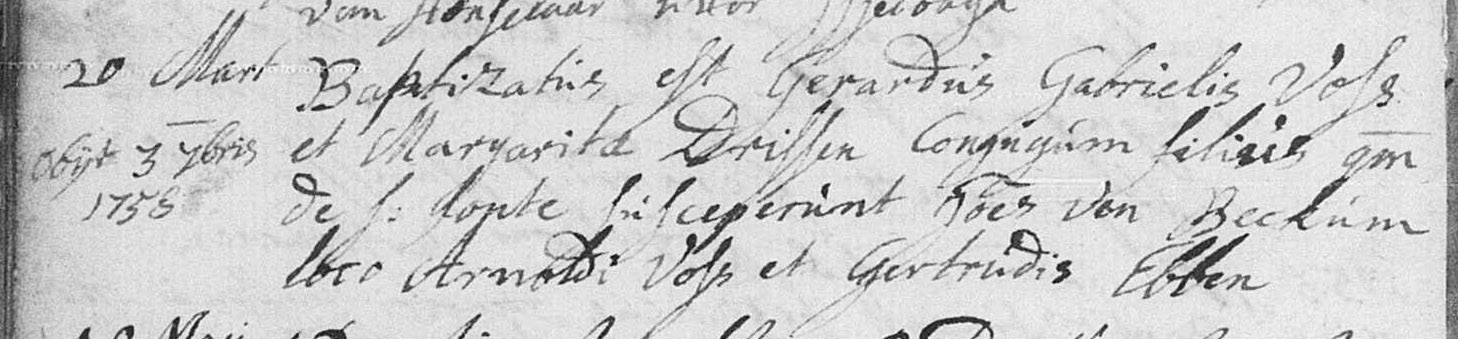 van
20 Mart Baptizatus est Gerardus Gabrielis Voss
obijt 3 7bris et Margaritæ Drissen Conjugum filius qm̄
1758 de s: fonte susceperunt Joes von Beckum
loco Arnoldi Voss et Gertrudis Ebben